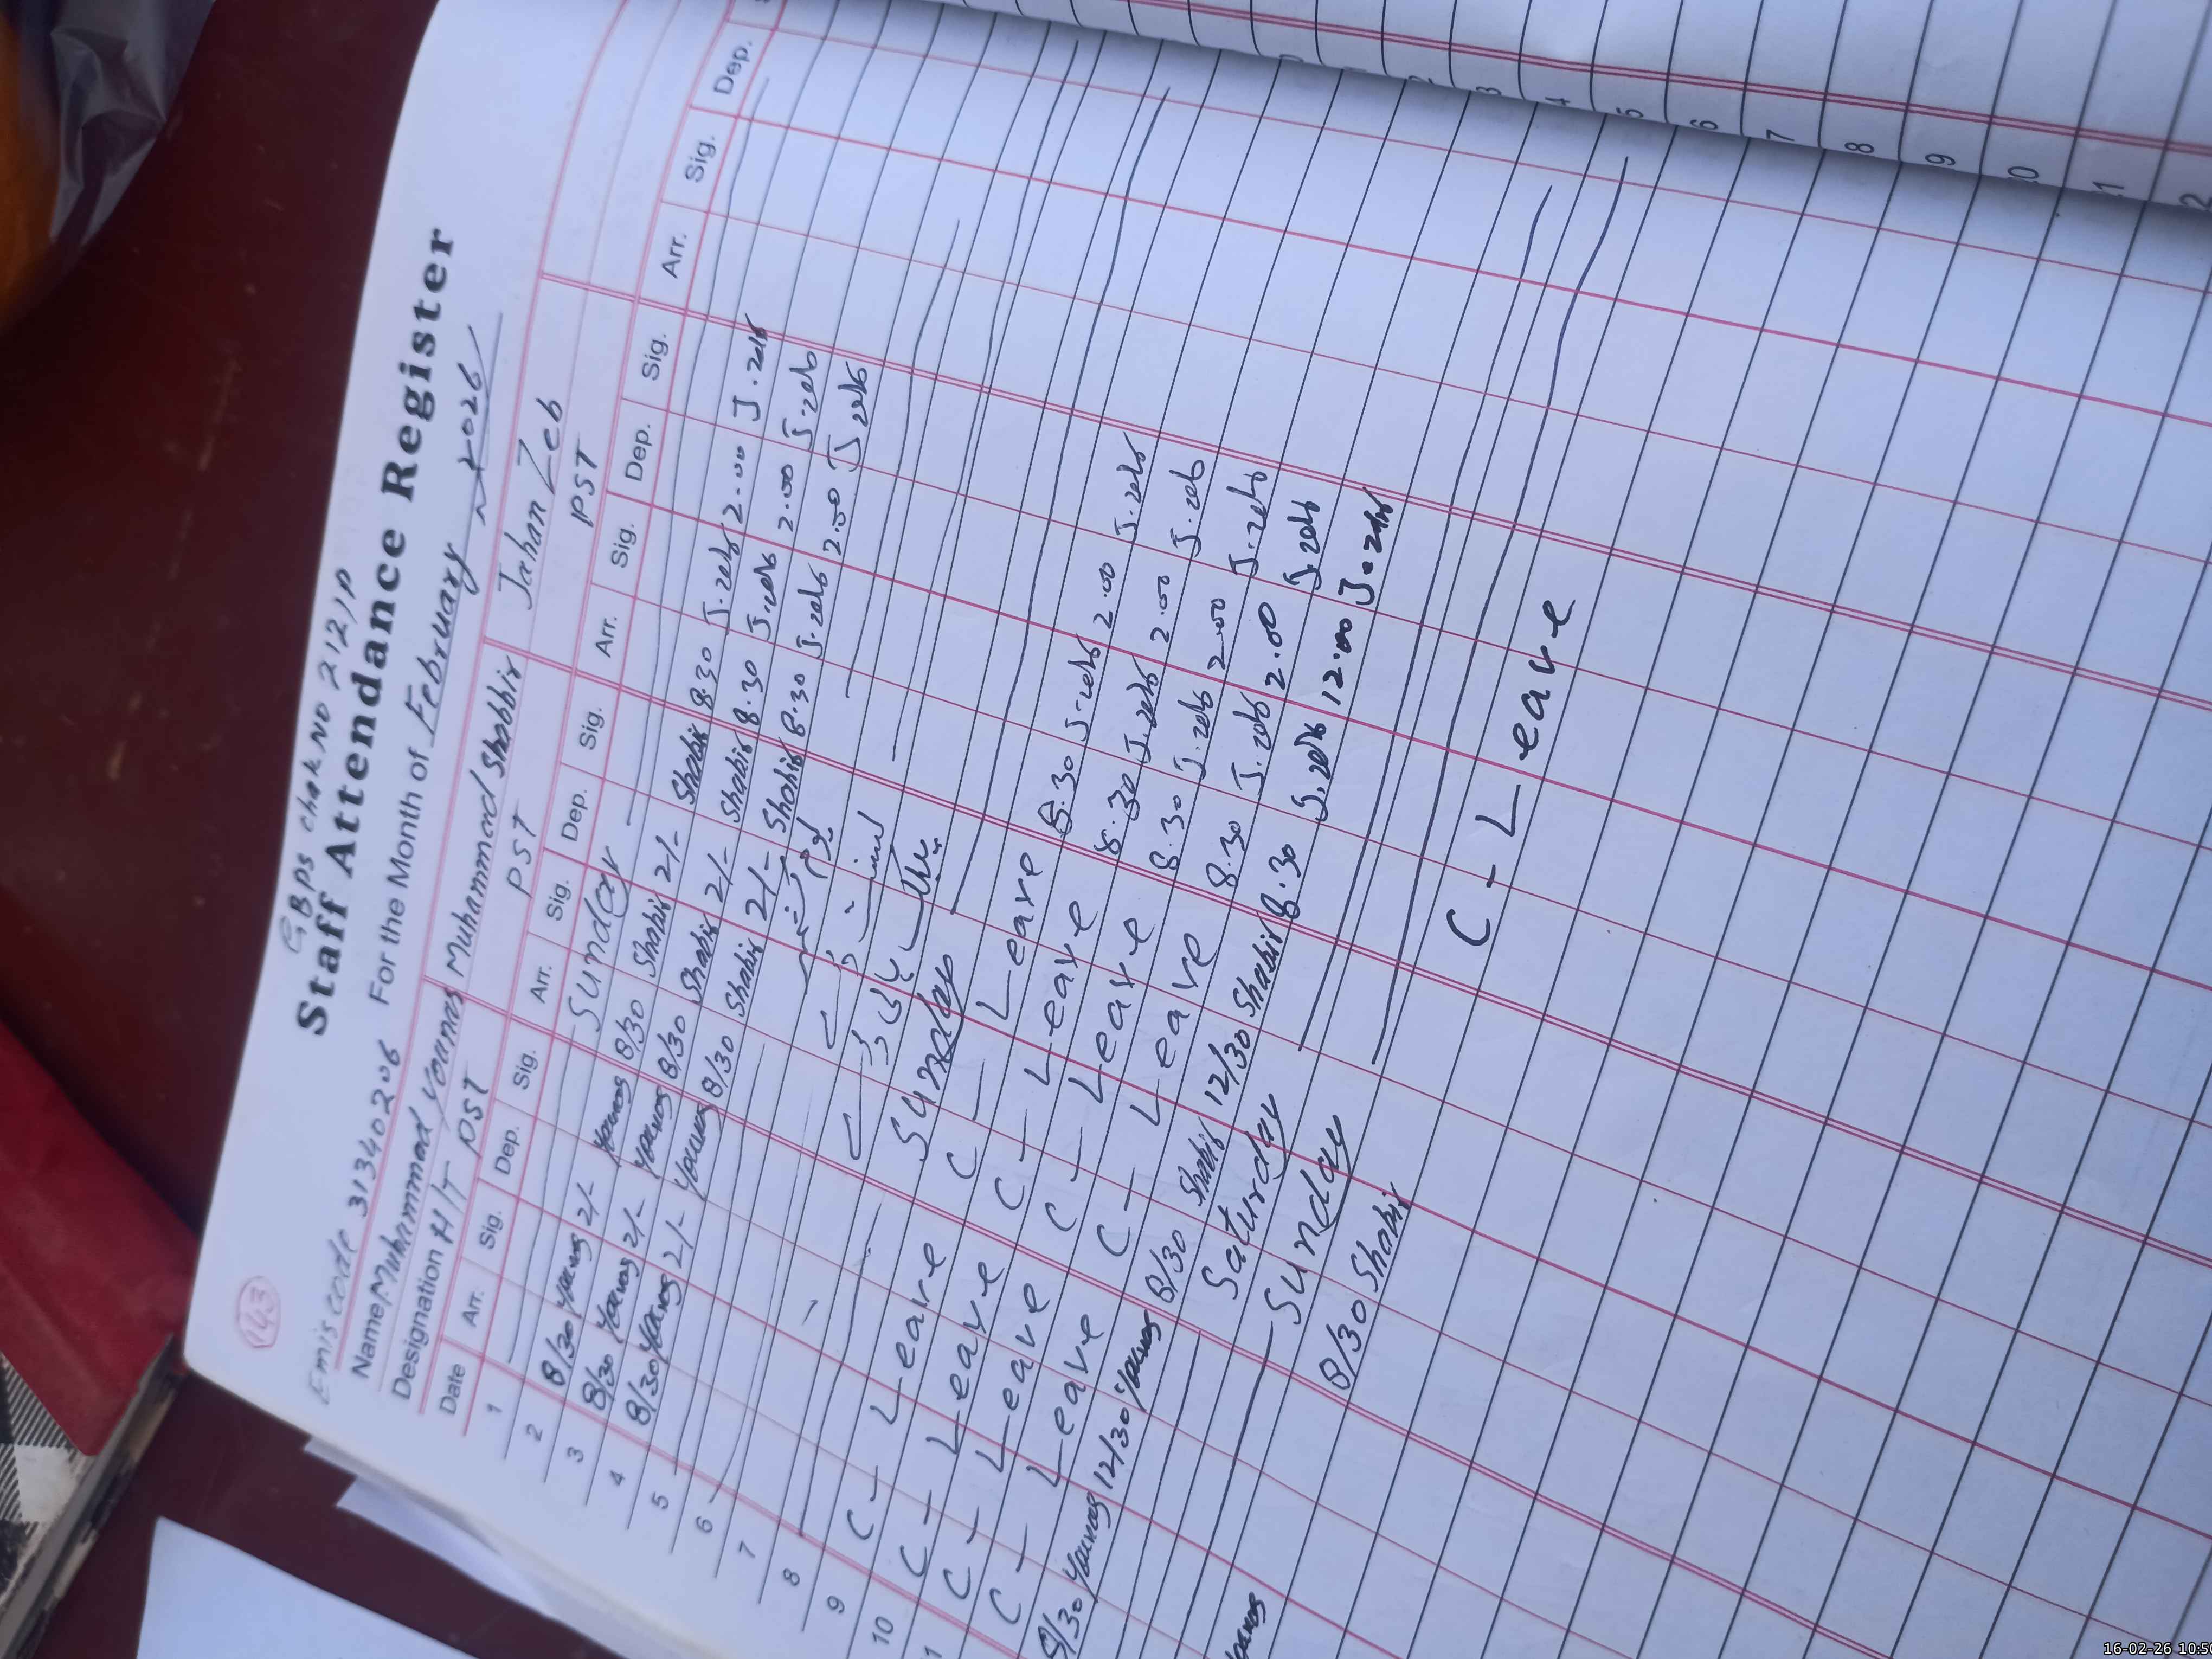 143
GBPS chak NO 212/P
Staff Attendance Register
Emis code 31340206 For the Month of February 2026
Name Muhammad Younas Muhammad Shabbir Jahan Zeb
Designation H/T PST PST PST
Date Arr. Sig. Dep. Sig. Arr. Sig. Dep. Sig. Arr. Sig. Dep. Sig. Arr. Sig. Dep.
1 Sunday
2 8/30 Younas 2/- Younas 8/30 Shabir 2/- Shabir 8.30 J.zeb 2.00 J.zeb
3 8/30 Younas 2/- Younas 8/30 Shabir 2/- Shabir 8.30 J.zeb 2.00 J.zeb
4 8/30 Younas 2/- Younas 8/30 Shabir 2/- Shabir 8.30 J.zeb 2.00 J zeb
5
6
7
8 Sunday
9 C - Leave C - Leave 8.30 J.zeb 2.00 J.zeb
10 C - Leave C - Leave 8.30 J.zeb 2.00 J.zeb
1 C - Leave C - Leave 8.30 J.zeb 2.00 J.zeb
C - Leave C - Leave 8.30 J.zeb 2.00 J.zeb
8/30 Younas 12/30 Younas 8/30 Shabir 12/30 Shabir 8.30 J.zeb 12.00 J.zeb
Saturday
Sunday
Younas 8/30 Shabir C - Leave
3
4
5
6
7
8
9
0
1
2
16-02-26 10:5